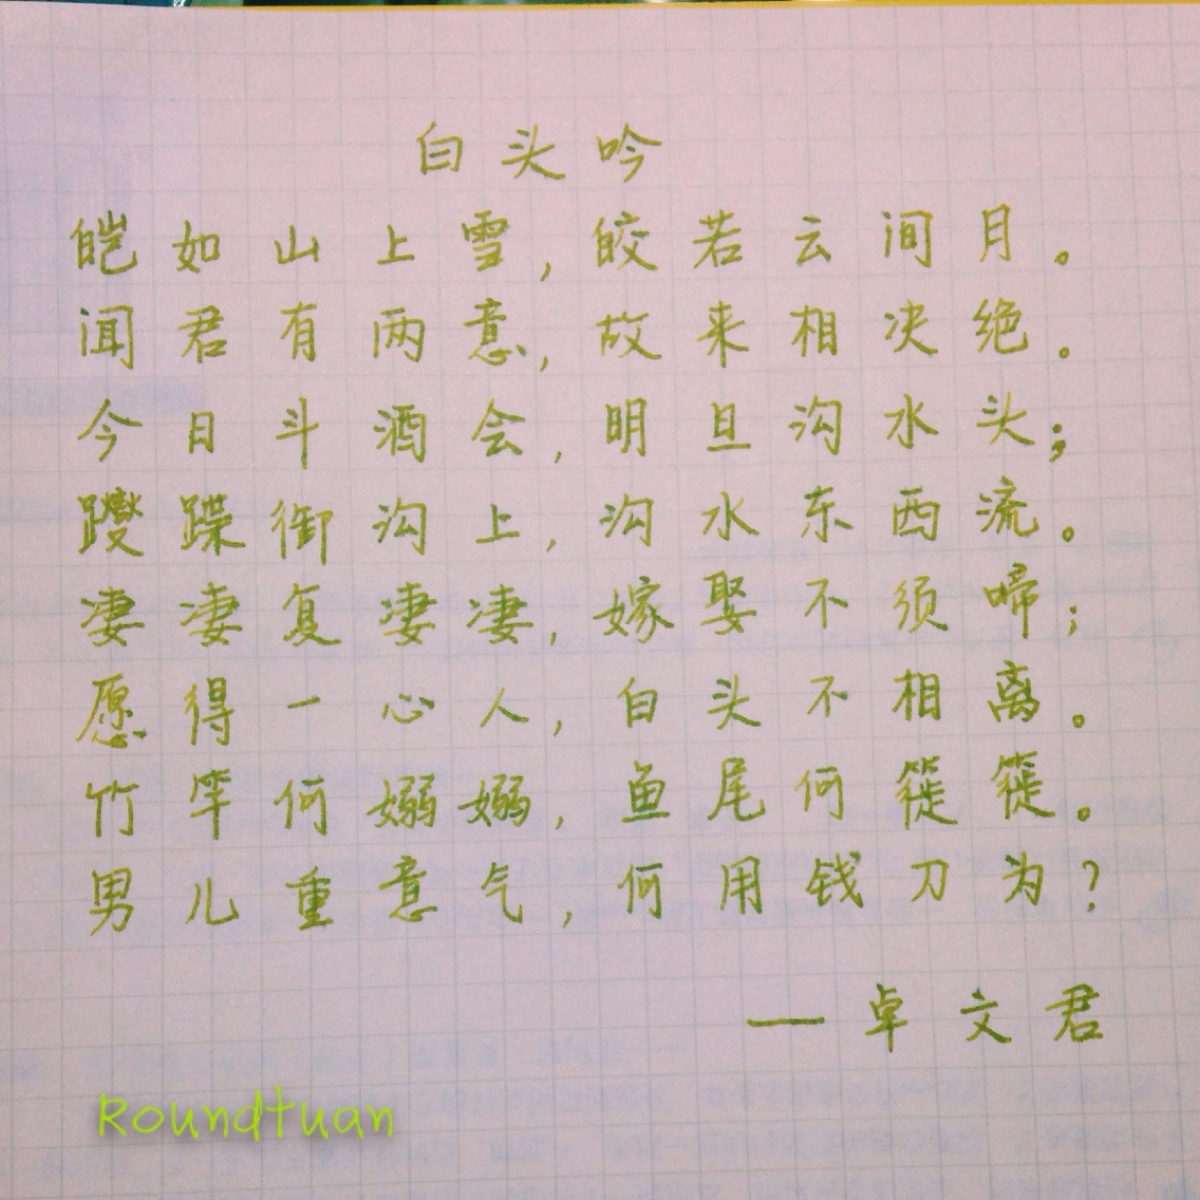 白头吟
皑如山上雪,皎若云间月。
闻君有两意,故来相决绝。
今日斗酒会,明旦沟水头;
躞蹀御沟上,沟水东西流。
凄凄复凄凄,嫁娶不须啼;
愿得一心人,白头不相离。
竹竿何嫋嫋,鱼尾何簁簁。
男儿重意气,何用钱刀为?
——卓文君
Roundtuan